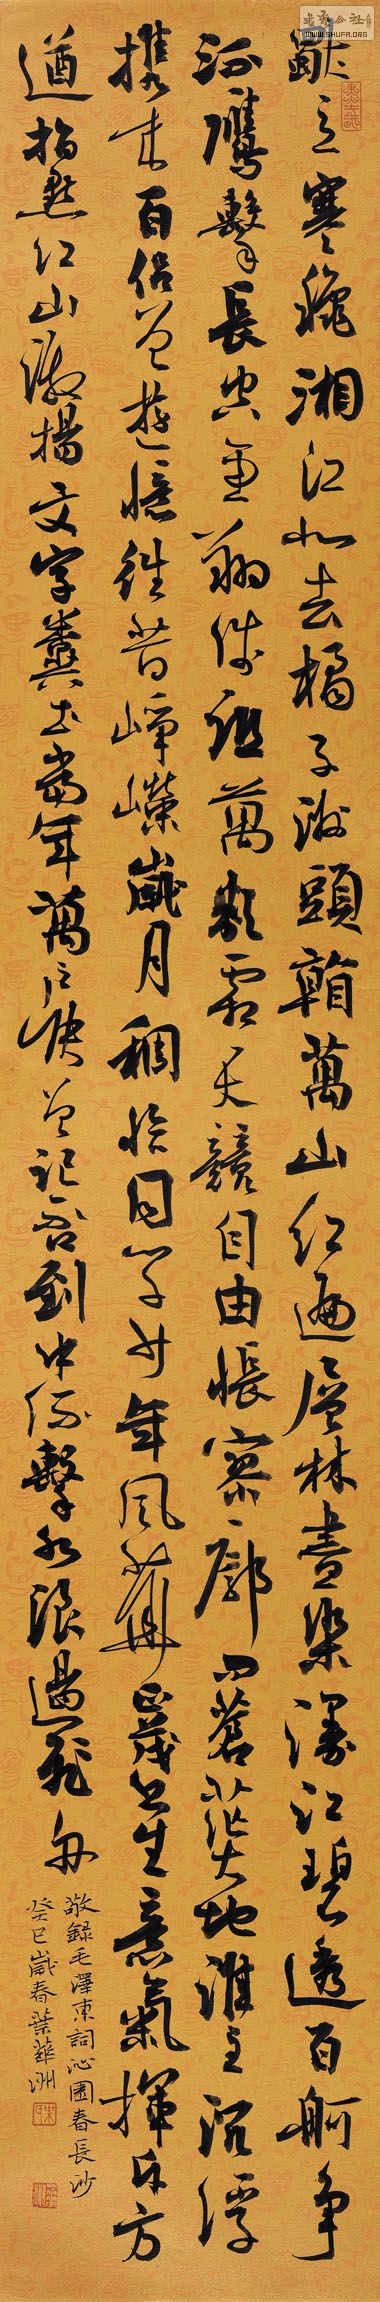 書法公社
WWW.SHUFA.ORG
獨立寒穐湘江北去橘子洲頭看萬山紅遍層林盡染漫江碧透百舸爭
流鷹擊長空魚翔淺底萬類霜天競自由悵寥廓問蒼茫大地誰主沉浮
攜來百侶曾遊憶往昔崢嶸歲月稠恰同學少年風華正茂書生意氣揮斥方
遒指點江山激揚文字糞土當年萬戶侯曾記否到中流擊水浪遏飛舟
敬錄毛澤東詞沁園春長沙
癸巳歲春葉華洲